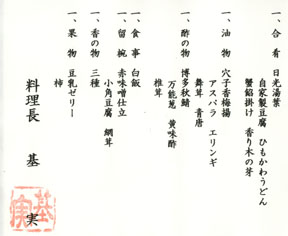 一、合肴 日光湯葉
自家製豆腐 ひもかわうどん
蟹餡掛け 香り木の芽
一、油物 穴子香梅揚
アスパラ エリンギ
舞茸 青唐
一、酢の物 博多秋鯖
万能葱 黄味酢
椎茸
一、食事 白飯
一、留椀 赤味噌仕立
小角豆腐 網茸
一、香の物 三種
一、果物 豆乳ゼリー
柿
料理長 基 実